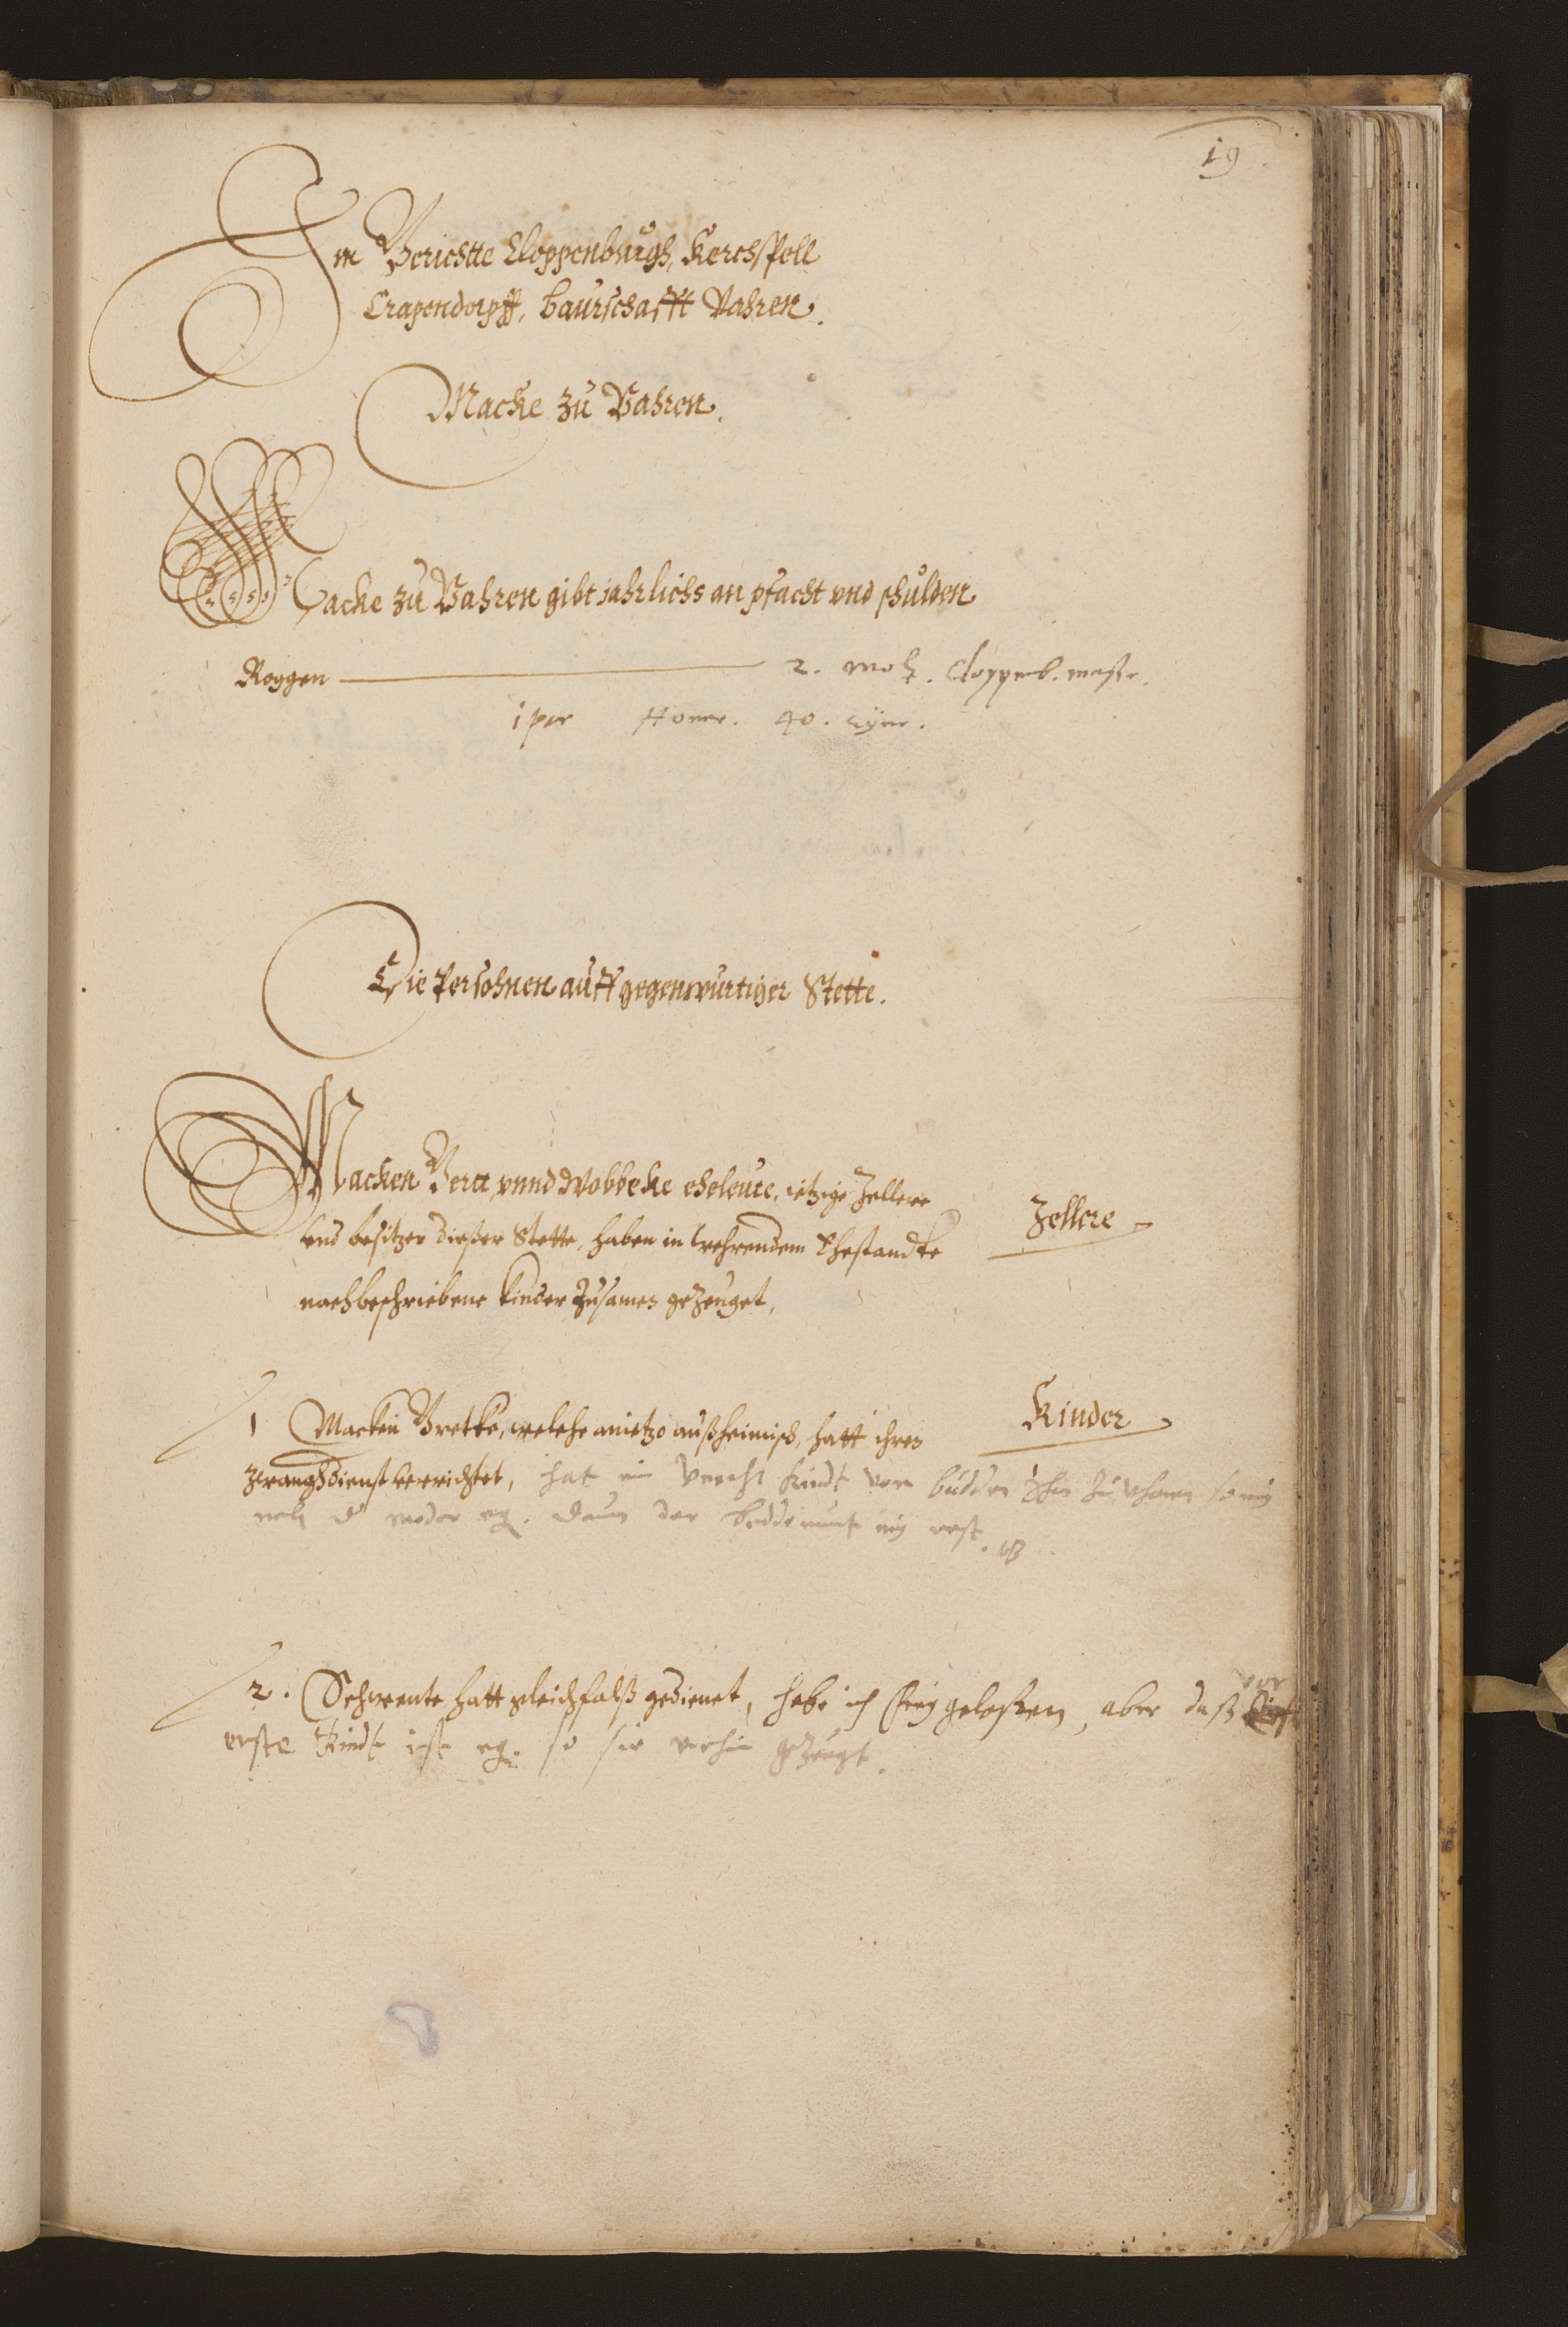 19
Im Gerichtte Cloppenburgh, Kerchspell
Crapendorpff, baurschafft Vahren.
Macke zu Vahren.
Macke zu Vahren gibt jahrlichs an pfacht vnd schulden
Roggen 2. molt. Cloppenb. maße.
1 par Honer. 40. eyer.
Die Persohnen auff gegenwurtiger Stette.
Macken Gertt vnnd Wobbeke eheleute, ietzige Zellere
vnd besitzer dießer Stette, haben in wehrendem Ehestandte
nachbeschriebene Kinder zusamen gezeuget,
Zellere
1 Macken Gretke, welche anietzo außheimisch, hatt ihren
Kinder
zwanghdienst verrichtet, hat ein vnecht kindt von budden zu
der moder eg. dan der
2. Schwente hatt gleichfalß gedienet, habe ich frey gelaßen, aber daß
vor
erste Kindt ist eg. so sie vorhin gezeugt.